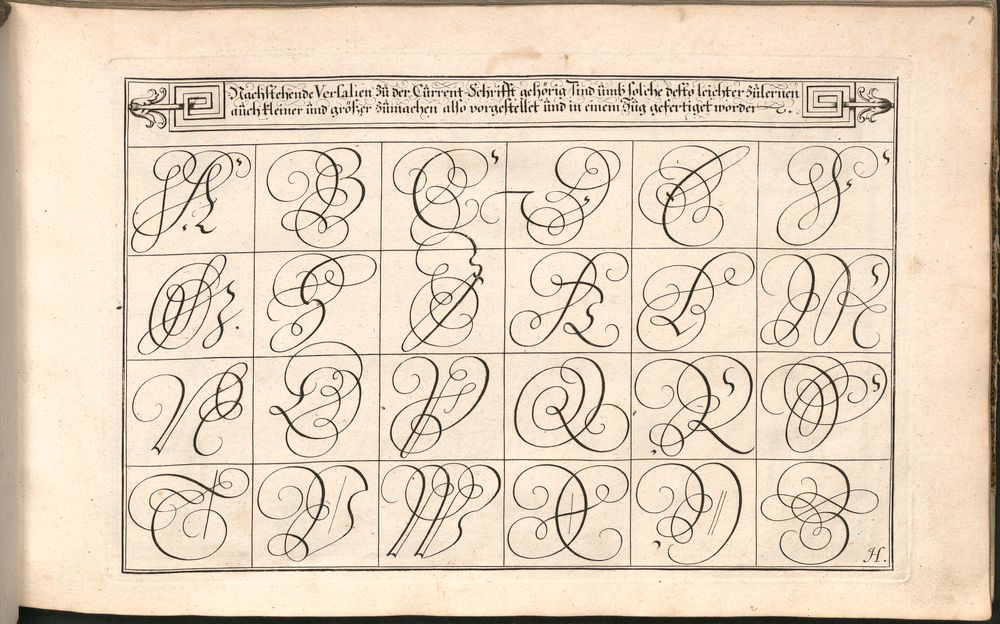 Nachstehende Versalien zü der Cürrent-Schrifft gehörig sind ümb solche desto leichter zülernen
aüch kleiner ünd größer zümachen also vorgestellet ünd in einem Züg gefertiget worden
A B C D E F
G H I K L M
N O P Q R S
T V W X Y Z
H.